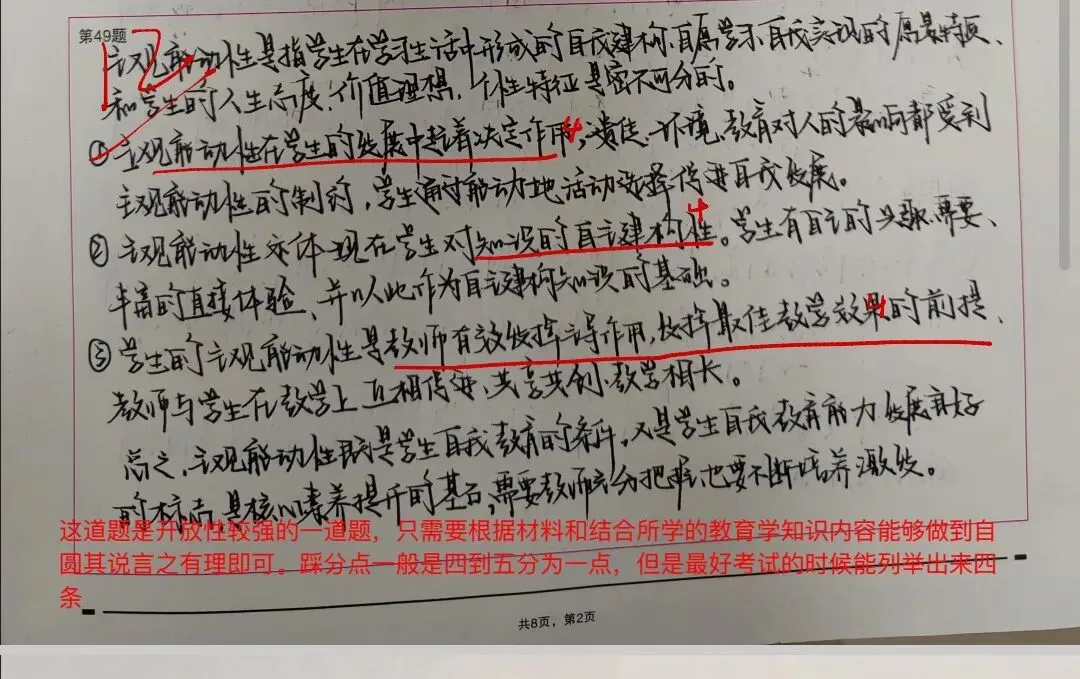 第49题
12
主观能动性是指学生在学习生活中形成的自我建构、自愿学习、自我实现的愿景特质、
和学生的人生态度、价值理想、个性特征是密不可分的。
① 主观能动性在学生的发展中起着决定作用,遗传、环境、教育对人的影响都受到
4
主观能动性的制约,学生通过能动地活动选择促进自我发展。
4
② 主观能动性还体现在学生对知识的自主建构性。学生有自己的兴趣、需要、
丰富的直接体验、并以此作为自主建构知识的基础。
③ 学生的主观能动性是教师有效发挥主导作用,发挥最佳教学效果的前提、
4
教师与学生在教学上互相促进、共享共创、教学相长。
总之、主观能动性既是学生自我教育的条件,又是学生自我教育能力发展良好
的标志,是核心素养提升的基石,需要教师充分把握、也要不断培养激发。
这道题是开放性较强的一道题,只需要根据材料和结合所学的教育学知识内容能够做到自
圆其说言之有理即可。踩分点一般是四到五分为一点,但是最好考试的时候能列举出来四
条
共8页,第2页